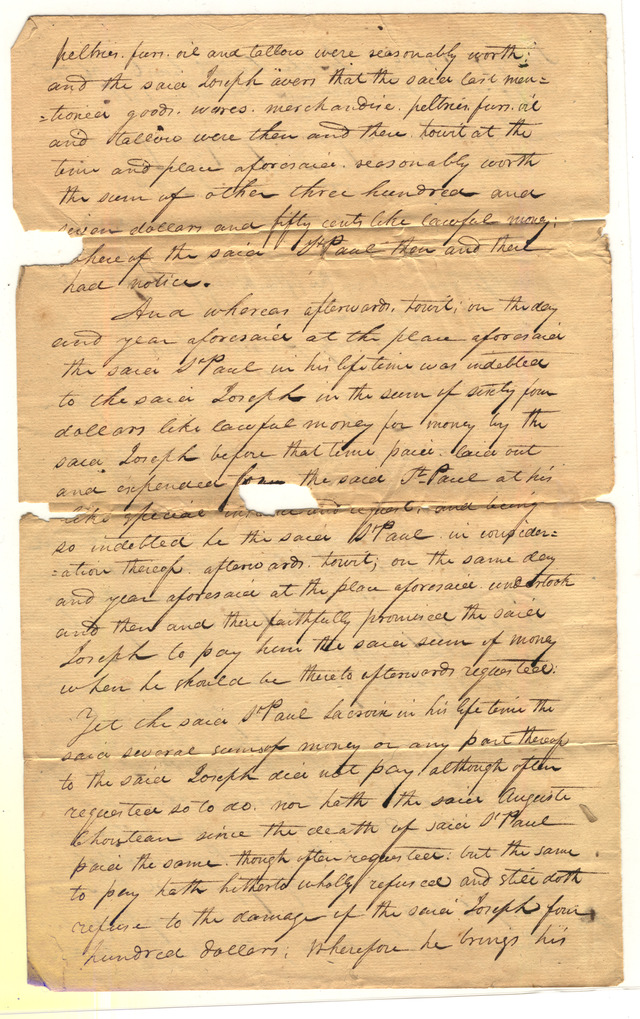 peltries. furs. oil and tallow were seasonably worth;
and the said Joseph avers that the said last men=
=tioned goods. wares. merchandise. peltries. furs. oil
and tallow were then and there. towit at the
time and place aforesaid. seasonably worth
the sum of other three hundred and
seven dollars and fifty cents like lawful money;
whereof the said St Paul then and there
had notice.
And whereas afterwards. towit; on the day
and year aforesaid at the place aforesaid
the said St Paul in his life time was indebted
to the said Joseph in the sum of sixty four
dollars like lawful money for money by the
said Joseph before that time paid. laid out
and expended for the said St Paul at his
like special and request; and being
so indebted he the said St Paul in consider=
=ation thereof. afterwards. towit; on the same day
and year aforesaid at the place aforesaid undertook
and then and there faithfully promised the said
Joseph to pay him the said sum of money
when he should be thereto afterwards requested:
Yet the said St Paul Lacroix in his life time the
said several sums of money or any part thereof
to the said Joseph did not pay, although often
requested so to do. nor hath the said Auguste
Choutean since the death of said St Paul
paid the same. though often requested: but the same
to pay hath hitherto wholly refused and still doth
refuse to the damage of the said Joseph four
hundred dollars; Wherefore he brings his